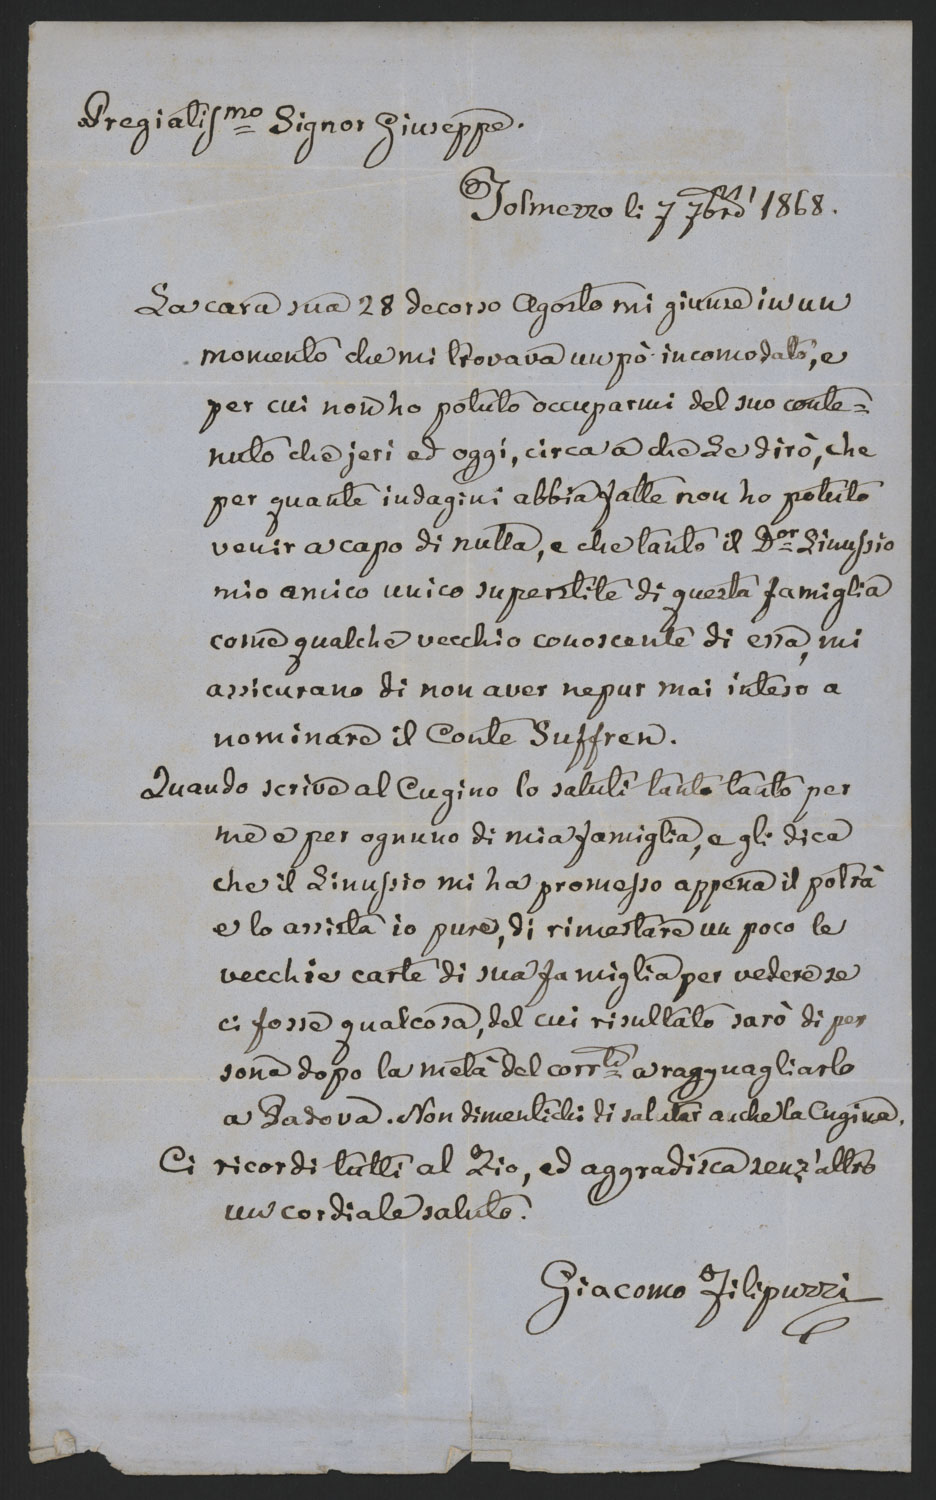 Pregiatissmo Signor Giuseppe.
Tolmezzo li 7 7bre 1868.
La cara sua 28 decorso Agosto mi giunse in un
momento che mi trovava un pò incomodato, e
per cui non ho potuto occuparmi del suo conte=
nuto che jeri ed oggi, circa a che Le dirò, che
per quante indagini abbia fatte non ho potuto
venir a capo di nulla, e che tanto il Dor Linussio
mio amico unico superstite di questa famiglia
come qualche vecchio conoscente di essa, mi
assicurano di non aver nepur mai inteso a
nominare il Conte Suffren.
Quando scrive al Cugino lo saluti tanto tanto per
me e per ognuno di mia famiglia, e gli dica
che il Linussio mi ha promesso appena il potrà
e lo assista io pure, di rimestare un poco le
vecchie carte di sua famiglia per vedere se
ci fosse qualcosa, del cui risultato sarò di per
sona dopo la metà del corrte a ragguagliarlo
a Padova. Non dimentichi di salutar anche la Cugina.
Ci ricordi tutti al Zio, ed aggradisca senz'altro
un cordiale saluto.
Giacomo Filipuzzi